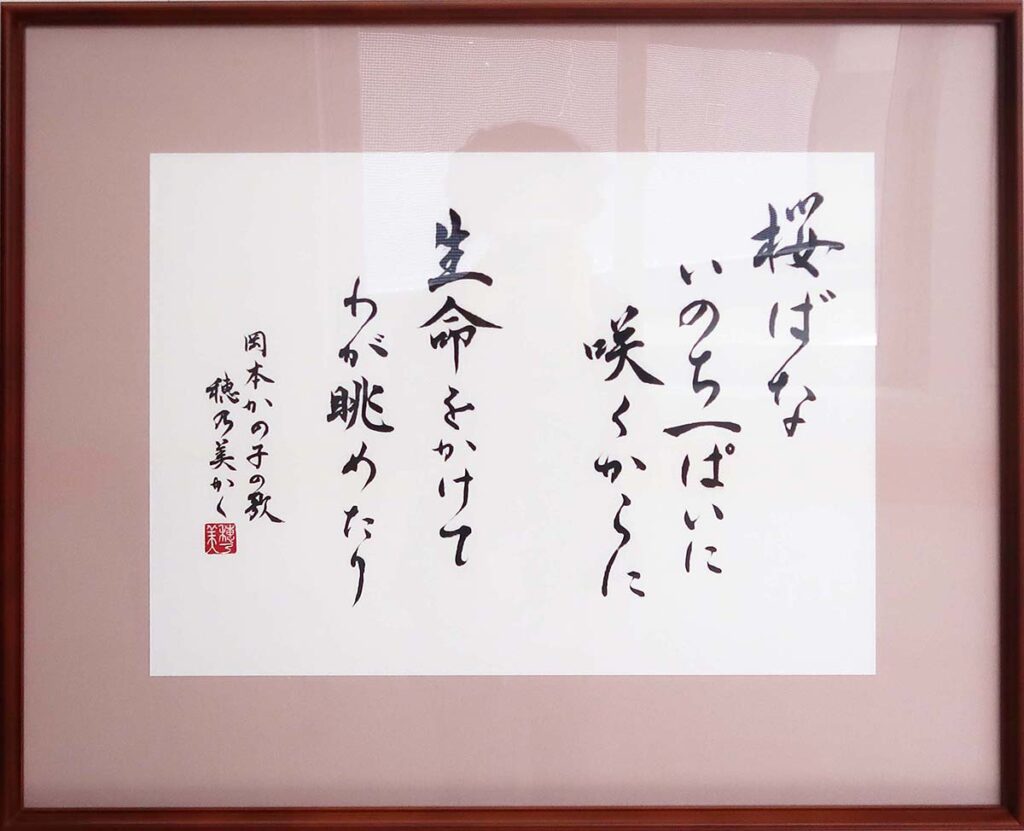 桜ばな
いのち一ぱいに
咲くからに
生命をかけて
わが眺めたり
岡本かの子の歌
穂乃美かく